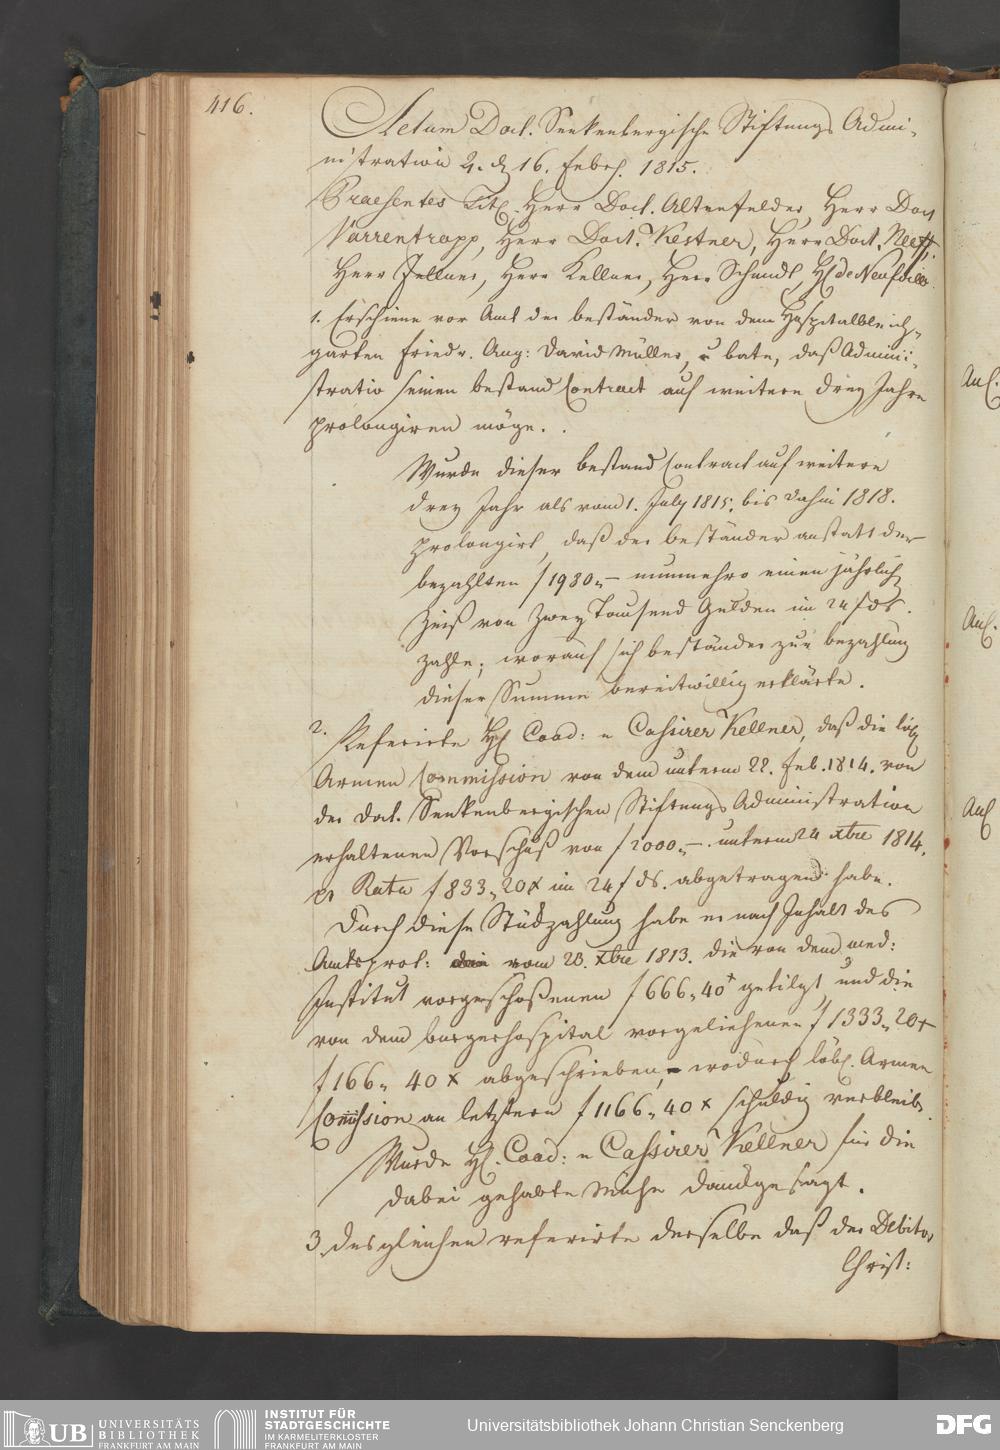 416.
Actum Doct. Senkenbergische Stiftungs Admi-
nistration 4. d 16. Febr. 1815.
Praesentes Tit. Herr Doct. Altenfelder, Herr Doct
Varrentrapp, Herr Doct. Kestner, Herr Doct. Neeff,
Herr Fellner, Herr Kellner, Herr Schmidt, H. de Neufville.
1. Erschiene vor Amt der beständer von dem Hospitalbleich-
garten Friedr. Aug: David Müller, u bate, daß Admini-
stratio seinen bestand Contract auf weitere drey Jahre
prolongiren möge.
Wurde dieser bestand Contract auf weitere
drey Jahr als vom 1. July 1815. bis dahin 1818.
prolongirt, daß der beständer anstatt der
bezahlten f 1980.- nunmehro einen jährlich
Zinß von Zwey Tausend Gulden im 24 f ds.
zahle; worauf sich beständer zur bezahlung
dieser Summe bereitwillig erklärte.
2. Referirte H. Coad: u Cassirer Kellner, daß die löbl
Armen Commission von dem unterm 22. Feb. 1814. von
der Doct. Senkenbergischen Stiftungs Administration
erhaltenen Vorschuß von f 2000.-. unterm 24 xbre 1814.
pr Rata f 833„20x im 24 f ds. abgetragen habe.
Durch diese Stückzahlung habe er nach Inhalt des
Amtsprot: vom 28. xbre 1813. die von dem med:
Institut vorgeschoßenen f 666„40x getilgt, und die
von dem burgerhospital vorgeliehenen f 1333„20x
f 166„ 40 x abgeschrieben, wodurch löbl. Armen
Commission an letztern f 1166„40 x schuldig verbleibt.
Wurde H. Coad: u Cassirer Kellner für die
dabei gehabte Mühe danckgesagt.
3. desgleichen referirte derselbe daß der Debitor
Christ:
UB
UNIVERSITÄTS
BIBLIOTHEK
FRANKFURT AM MAIN
INSTITUT FÜR
STADTGESCHICHTE
IM KARMELITERKLOSTER
FRANKFURT AM MAIN
Universitätsbibliothek Johann Christian Senckenberg
DFG